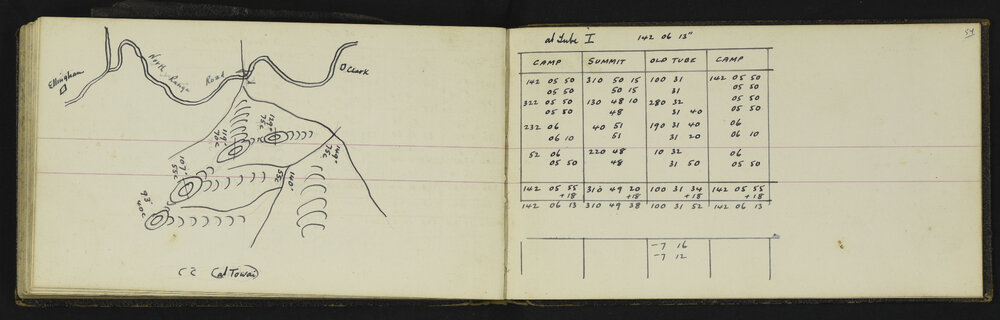 Ellingham
North Range Road
Clark
129° 75c
119° 70c
149° 75c
107° 55c
140° 55c
93° 40c
C2 (at Towai)
54
at Tube I 142 06 13"
CAMP SUMMIT OLD TUBE CAMP
142 05 50 310 50 15 100 31 142 05 50
05 50 50 15 31 05 50
322 05 50 130 48 10 280 32 05 50
05 50 48 31 40 05 50
232 06 40 51 190 31 40 06
06 10 51 31 20 06 10
52 06 220 48 10 32 06
05 50 48 31 50 05 50
142 05 55 310 49 20 100 31 34 142 05 55
+18 +18 +18 +18
142 06 13 310 49 38 100 31 52 142 06 13
-7 16
-7 12